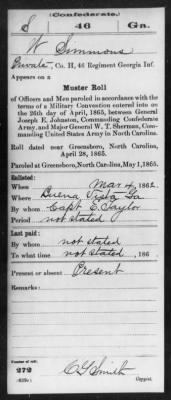 (Confederate.)
S 46 Ga.
W Simmons
Private, Co. H, 46 Regiment Georgia Inf.
Appears on a
Muster Roll
of Officers and Men paroled in accordance with the
terms of a Military Convention entered into on
the 26th day of April, 1865, between General
Joseph E. Johnston, Commanding Confederate
Army, and Major General W. T. Sherman, Com-
manding United States Army in North Carolina.
Roll dated near Greensboro, North Carolina,
April 28, 1865.
Paroled at Greensboro, North Carolina, May 1, 1865.
Enlisted:
When Mar 4, 1862.
Where Buena Vista Ga
By whom Capt E. Taylor
Period not stated
Last paid:
By whom not stated
To what time not stated, 186 .
Present or absent Present
Remarks:
Number of roll:
272
C G Smith
Copyist.